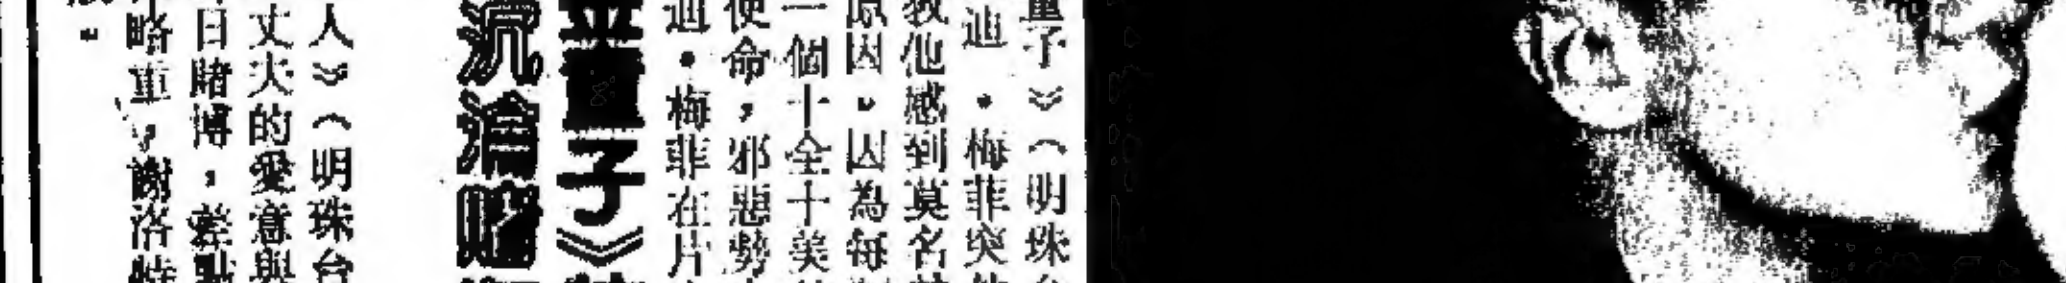 童子》（明珠台
迪・梅菲突
教他感到莫名
原因。因為每
一個十全十美
使命，邪惡勢
迪・梅菲在片
童子》
沉淪賭
人》（明珠台
丈夫的愛意與
日賭博，差點
略重，謝洛特
。